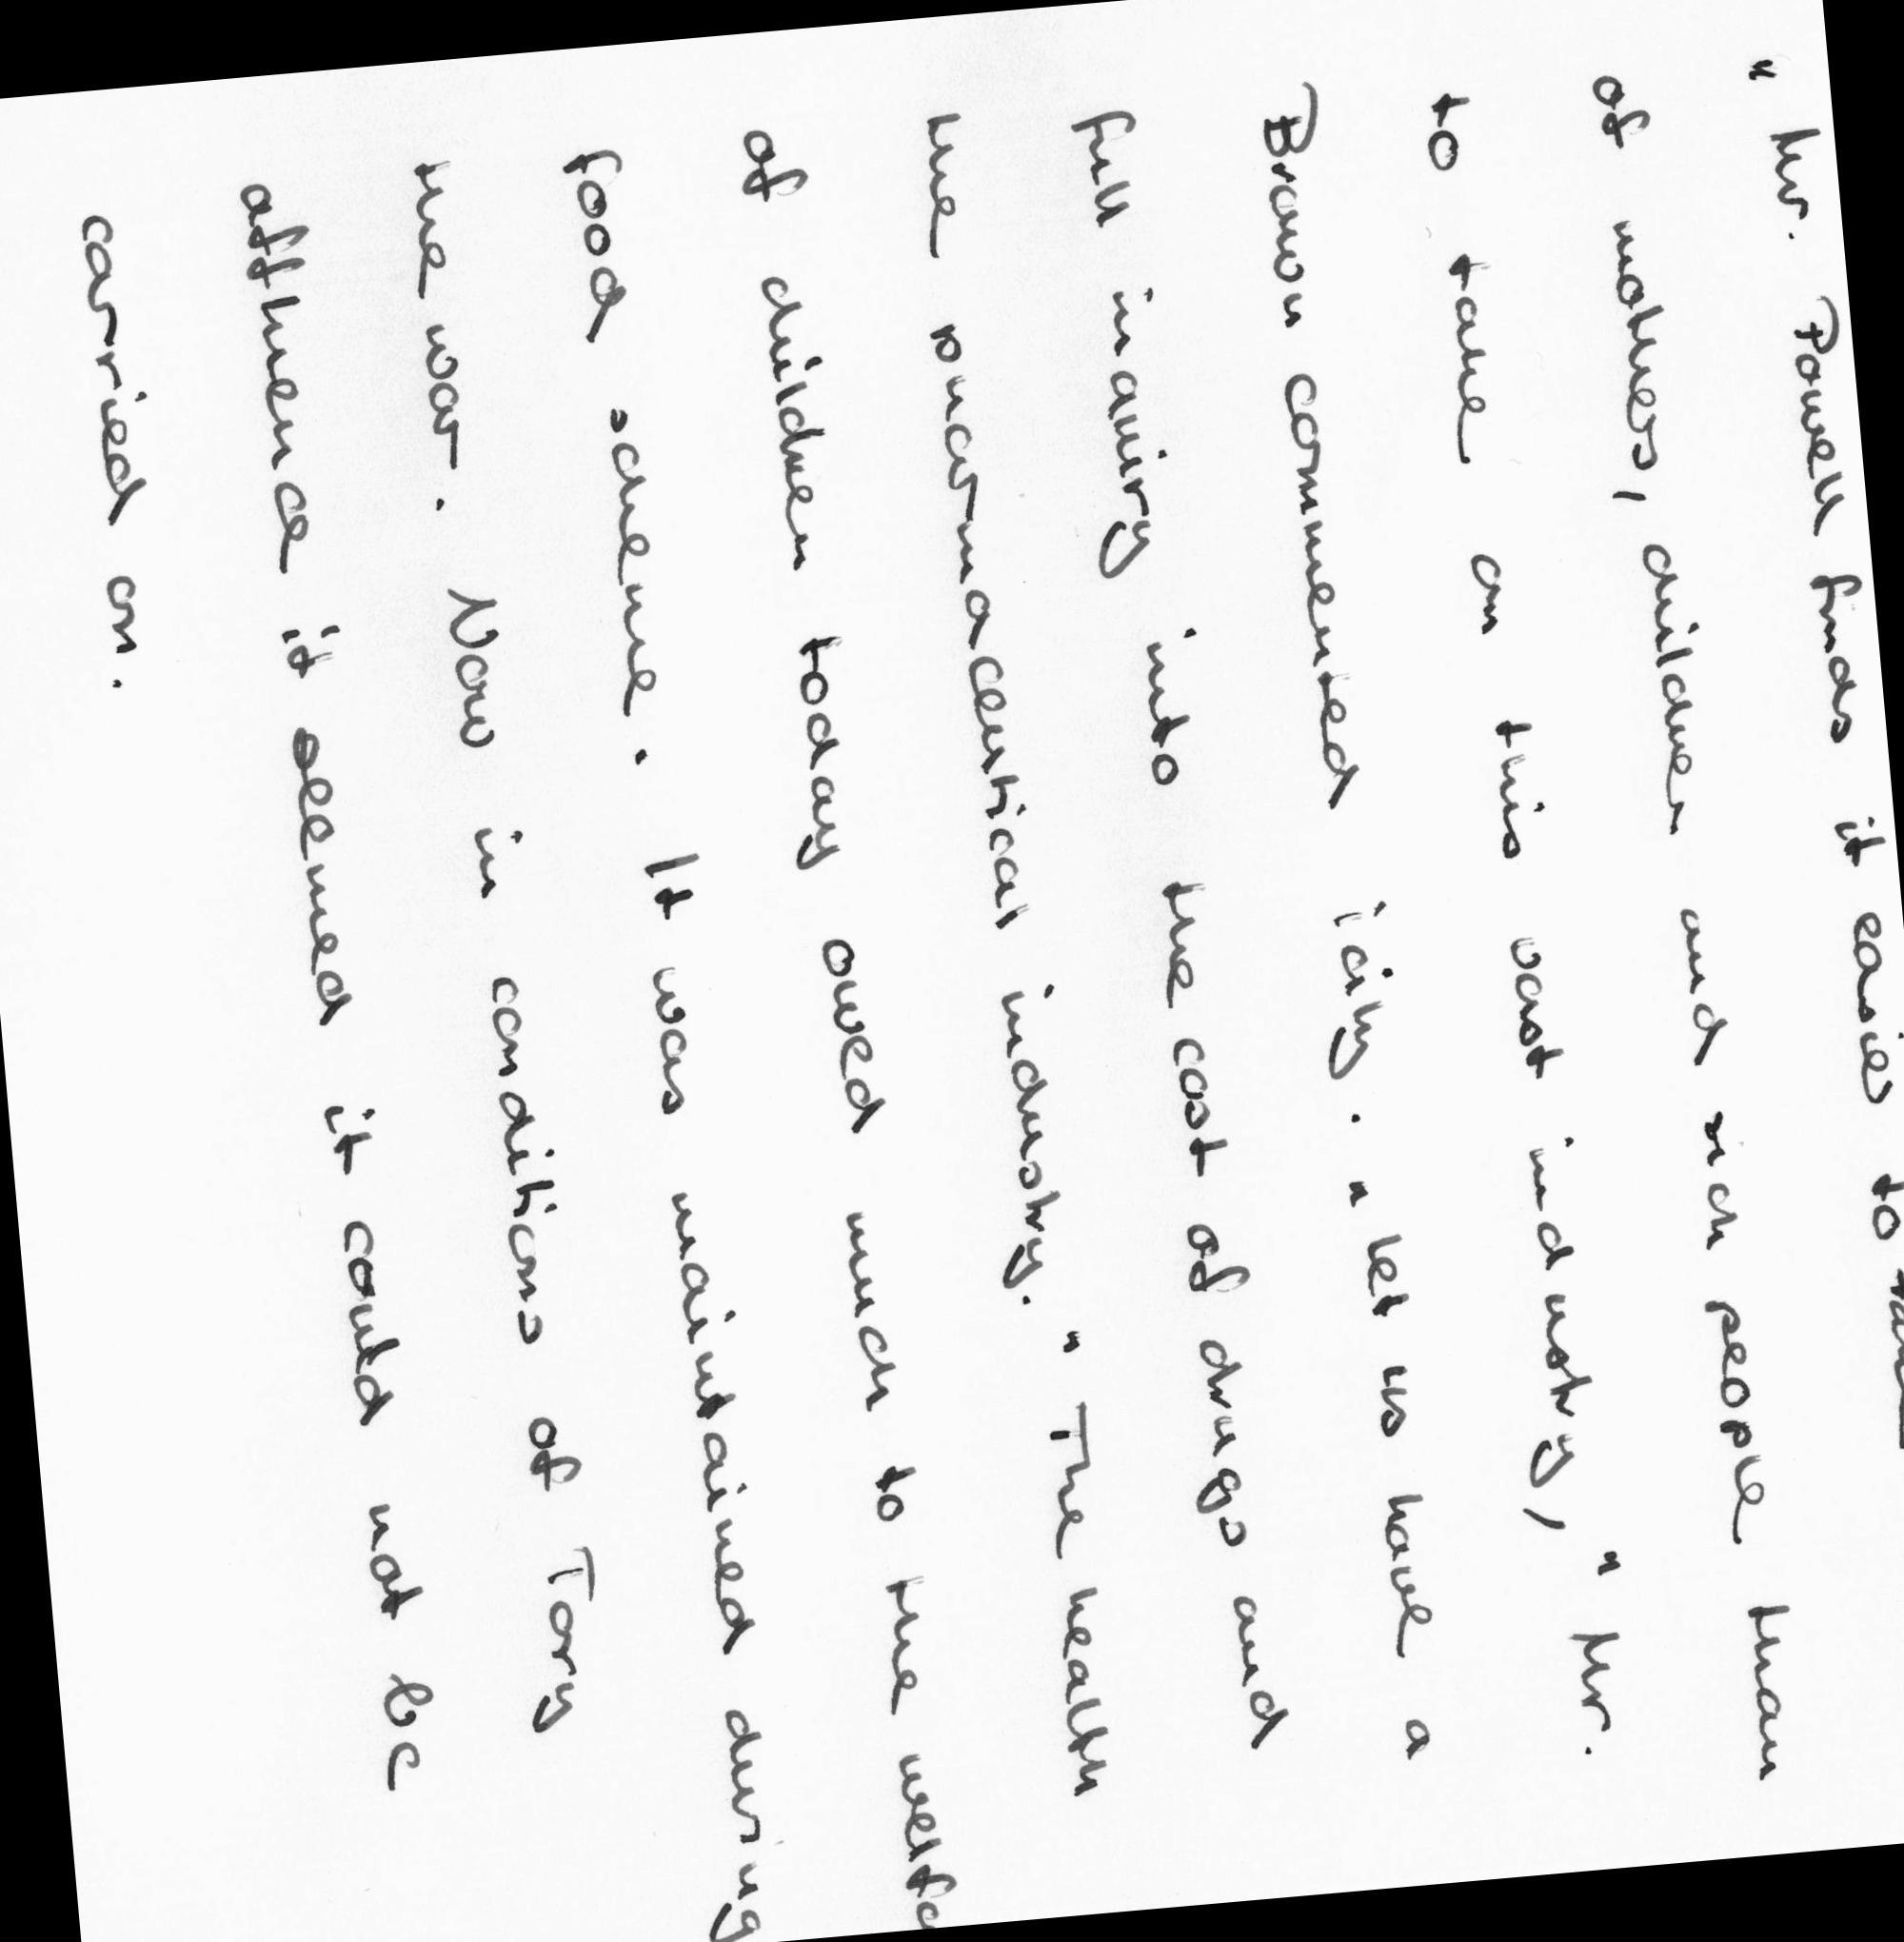 " Mr. Powell finds it easier to
of mothers, children and sick people than
to take on this vast industry, " Mr.
Brown commented icily. " Let us have a
full inquiry into the cost of drugs and
the pharmaceutical industry. " The health
of children today owed much to the
food scheme. It was maintained during
the war. Now in conditions of Tory
affluence it seemed it could not be
carried on.